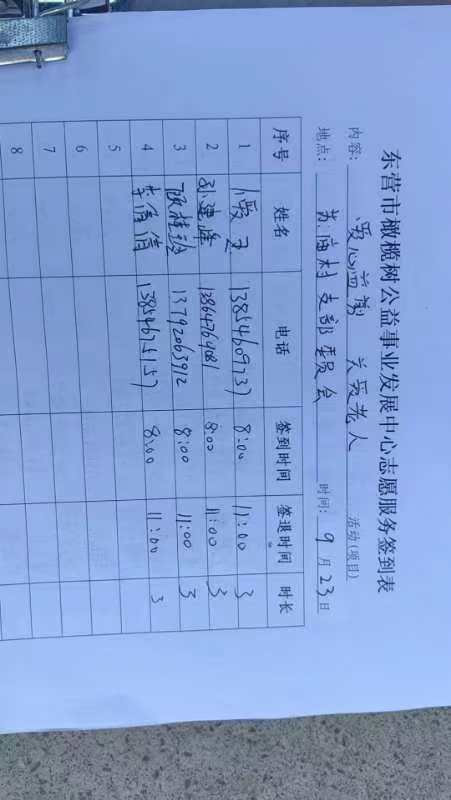 东营市橄榄树公益事业发展中心志愿服务签到表
内容: 爱心前 关爱老人 活动(项目)
地点: 村支部委员会 时间: 9月23日
序号 姓名 电话 签到时间 签退时间 时长
1 13854609737 8:00 11:00 3
2 孙建峰 13864764081 8:00 11:00 3
3 顾桂班 13792063912 8:00 11:00 3
4 李 倩 13854675157 8:00 11:00 3
5
6
7
8